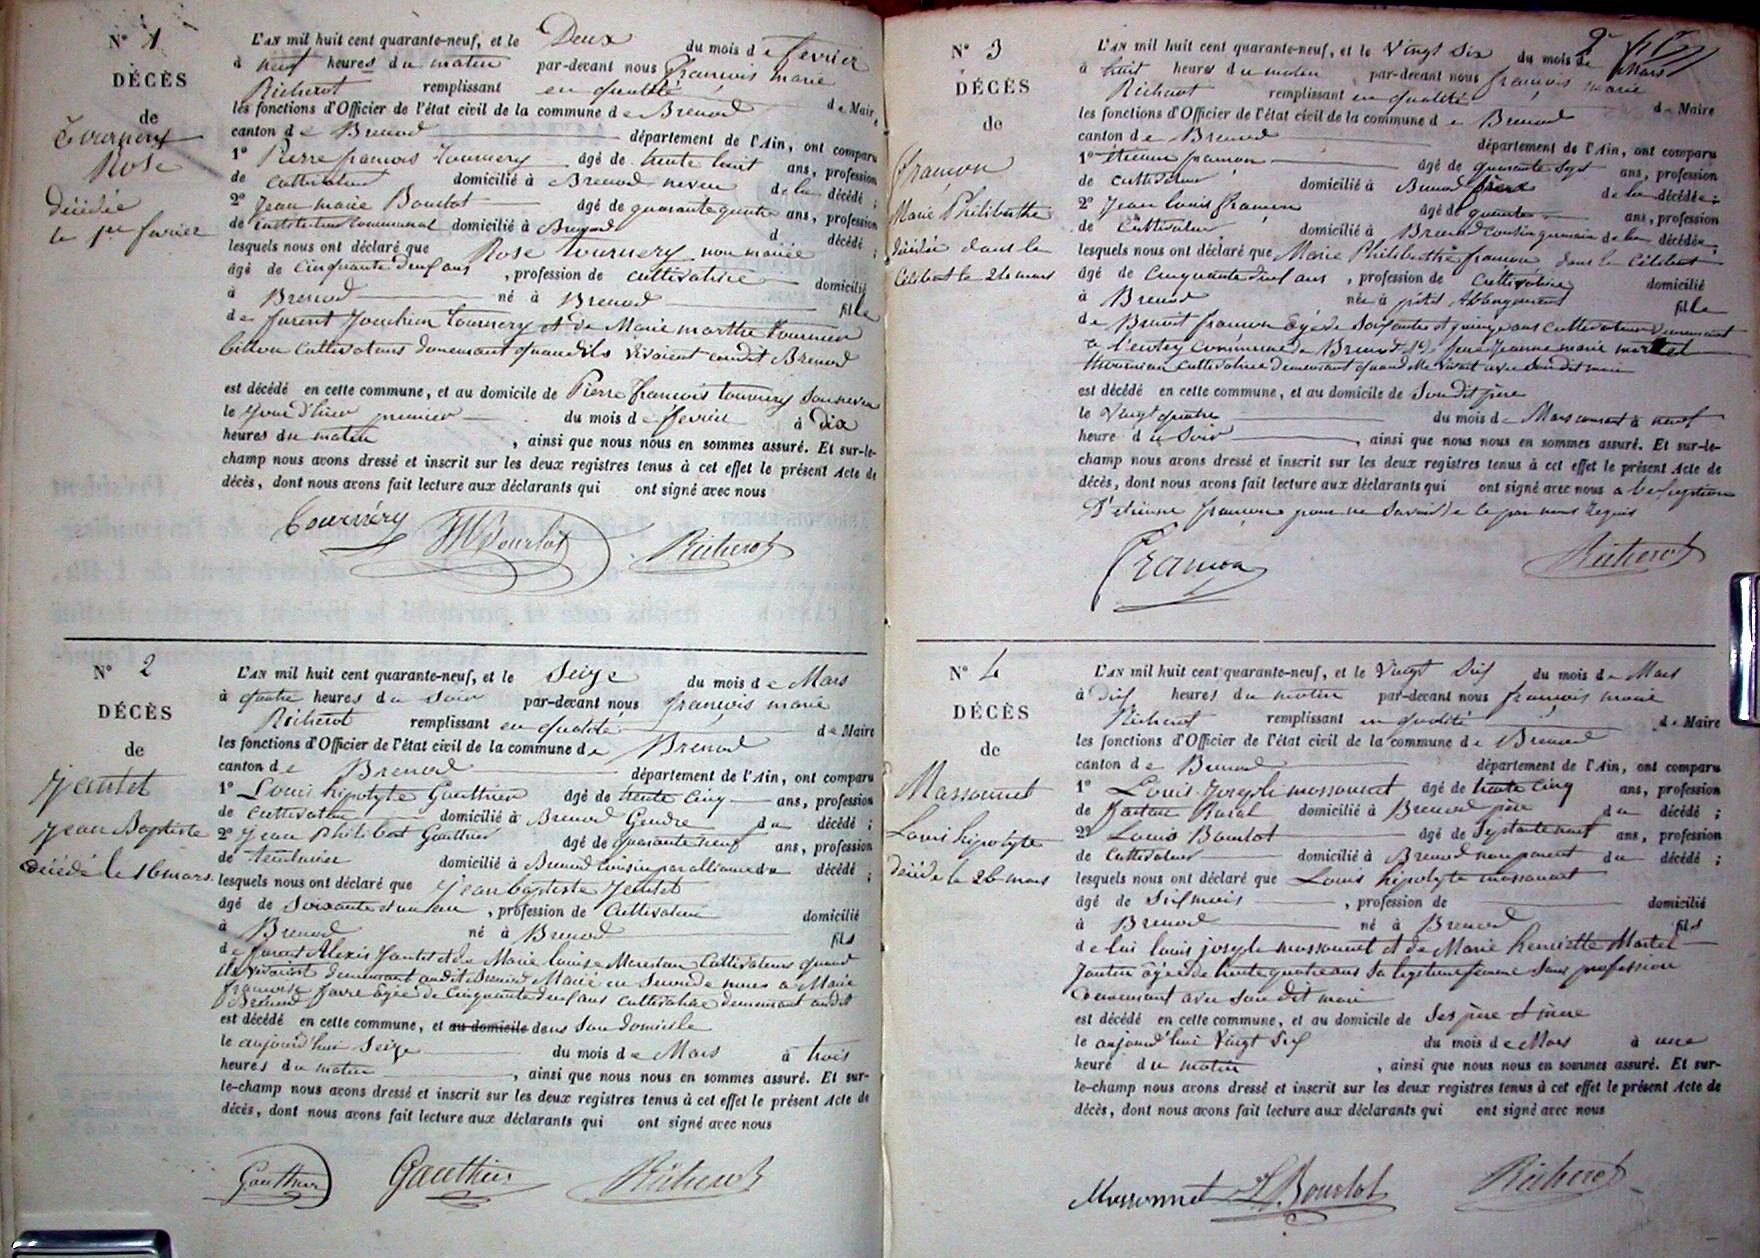 N° 1
DÉCÈS
de
Tournery
Rose
décédée
le 1er fevrier
L'AN mil huit cent quarante-neuf, et le Deux du mois de fevrier
à neuf heures du matin par-devant nous françois marie
Richerot remplissant en qualité de Maire,
les fonctions d'Officier de l'état civil de la commune de Brenod
canton de Brenod département de l'Ain, ont comparu
1° Pierre françois Tournery âgé de trente huit ans, profession
de cultivateur domicilié à Brenod neveu de la décédé ;
2° Jean marie Bourlot âgé de quarante quatre ans, profession
de instituteur communal domicilié à Brenod d décédé ;
lesquels nous ont déclaré que Rose Tournery non mariée
âgé de cinquante deux ans, profession de cultivatrice domicilié
à Brenod né à Brenod fille
de furent Joachim Tournery et de Marie marthe Tournier
billon cultivateurs demeurant quand ils vivaient audit Brenod
est décédé en cette commune, et au domicile de Pierre françois tournery son neveu
le jour d'hier premier du mois de fevrier à dix
heures du matin, ainsi que nous nous en sommes assuré. Et sur-le-
champ nous avons dressé et inscrit sur les deux registres tenus à cet effet le présent Acte de
décès, dont nous avons fait lecture aux déclarants qui ont signé avec nous
Tournery JM Bourlot Richerot
N° 2
DÉCÈS
de
Jantet
Jean Baptiste
décédé le 16 mars
L'AN mil huit cent quarante-neuf, et le Seize du mois de Mars
à quatre heures du soir par-devant nous françois marie
Richerot remplissant en qualité de Maire
les fonctions d'Officier de l'état civil de la commune de Brenod
canton de Brenod département de l'Ain, ont comparu
1° Louis hipolyte Gauthier âgé de trente cinq ans, profession
de cultivateur domicilié à Brenod Gendre du décédé ;
2° Jean Philibert Gauthier âgé de quarante neuf ans, profession
de domicilié à Brenod cousin par alliance du décédé ;
lesquels nous ont déclaré que Jean baptiste Jantet
âgé de soixante et un an, profession de Cultivateur domicilié
à Brenod né à Brenod fils
de furent Alexis Jantet et de Marie louise cultivateurs quand
ils vivaient demeurant audit Brenod Marié en seconde noces a Marie
françoise favre âgée de cinquante deux ans cultivatrice demeurant audit
Brenod
est décédé en cette commune, et au domicile dans son domicile
le aujourd'hui seize du mois de Mars à trois
heures du matin, ainsi que nous nous en sommes assuré. Et sur-
le-champ nous avons dressé et inscrit sur les deux registres tenus à cet effet le présent Acte de
décès, dont nous avons fait lecture aux déclarants qui ont signé avec nous
Gauthier Gauthier Richerot
2e
N° 3
DÉCÈS
de
françon
Marie Philiberthe
décédée dans le
Célibat le 24 mars
L'AN mil huit cent quarante-neuf, et le Vingt Six du mois de Mars
à huit heures du matin par-devant nous françois marie
Richerot remplissant en qualité de Maire
les fonctions d'Officier de l'état civil de la commune de Brenod
canton de Brenod département de l'Ain, ont comparu
1° étienne françon âgé de quarante sept ans, profession
de cultivateur domicilié à Brenod frère de la décédée ;
2° Jean louis françon âgé de quarante ans, profession
de Cultivateur domicilié à Brenod cousin germain de la décédée ;
lesquels nous ont déclaré que Marie Philiberthe françon dans le Célibat
âgé de cinquante deux ans, profession de Cultivatrice domicilié
à Brenod née à petit Abbergement fille
de Benoit françon âgé de soixante et quinze ans cultivateur demeurant
a commune de Brenod et feue Jeanne marie
cultivatrice demeurant quand elle vivait avec son dit mari
est décédé en cette commune, et au domicile de son dit père
le vingt quatre du mois de Mars courant à neuf
heure du soir, ainsi que nous nous en sommes assuré. Et sur-le-
champ nous avons dressé et inscrit sur les deux registres tenus à cet effet le présent Acte de
décès, dont nous avons fait lecture aux déclarants qui ont signé avec nous a l'exception
d'etienne françon pour ne savoir de ce par nous requis
françon Richerot
N° 4
DÉCÈS
de
Massonnet
Louis hipolyte
décédé le 26 mars
L'AN mil huit cent quarante-neuf, et le Vingt Six du mois de Mars
à dix heures du matin par-devant nous françois marie
Richerot remplissant en qualité de Maire
les fonctions d'Officier de l'état civil de la commune de Brenod
canton de Brenod département de l'Ain, ont comparu
1° Louis Joseph massonnet âgé de trente cinq ans, profession
de facteur Rural domicilié à Brenod père du décédé ;
2° Louis Bourlot âgé de Septante neuf ans, profession
de Cultivateur domicilié à Brenod non parent du décédé ;
lesquels nous ont déclaré que Louis hipolyte massonnet
âgé de six mois, profession de domicilié
à Brenod né à Brenod fils
de lui louis joseph massonnet et de Marie henriette Martel
Jantin âgée de trente quatre ans sa legitime femme sans profession
demeurant avec son dit mari
est décédé en cette commune, et au domicile de ses père et mère
le aujourd'hui vingt six du mois de Mars à une
heure du matin, ainsi que nous nous en sommes assuré. Et sur-
le-champ nous avons dressé et inscrit sur les deux registres tenus à cet effet le présent Acte de
décès, dont nous avons fait lecture aux déclarants qui ont signé avec nous
Massonnet L. Bourlot Richerot